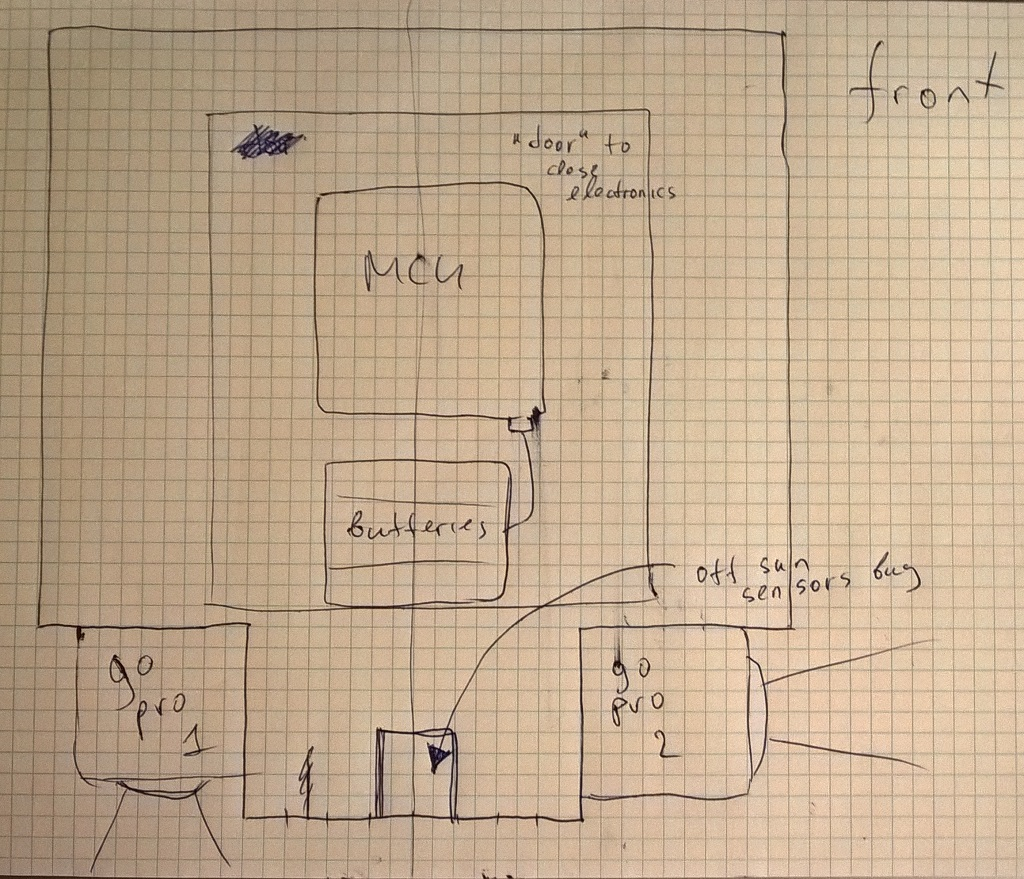 front
"door" to
close
electronics
MCU
Butteries
off sun
sensors bug
go
pro
1
go
pro
2